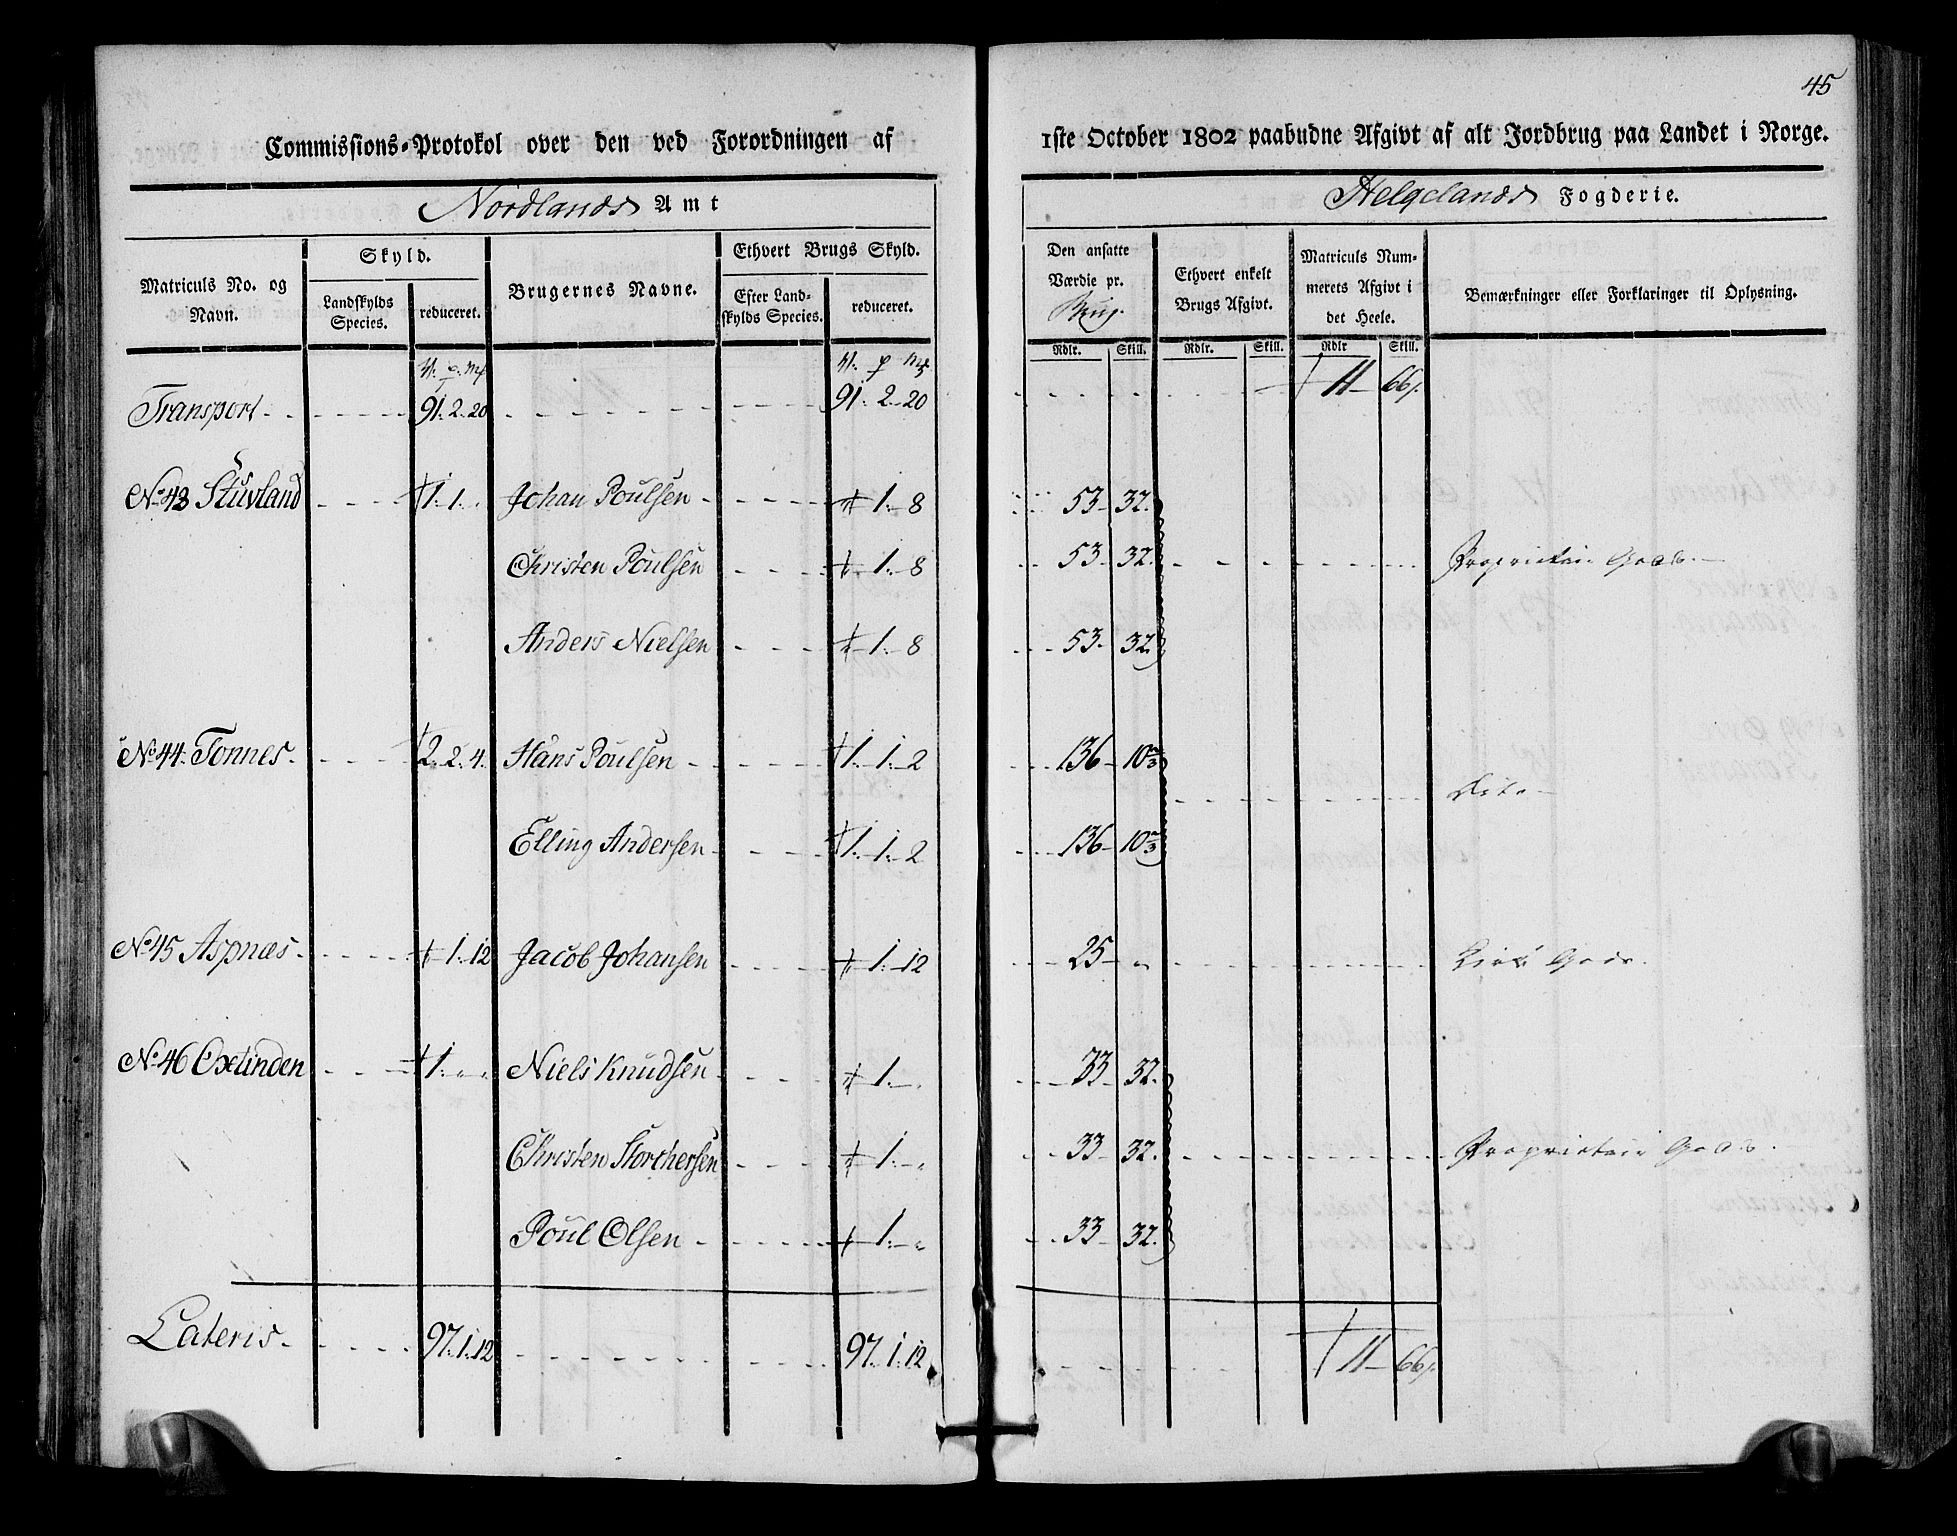 45
Commissions-Protokol over den ved Forordningen af 1ste October 1802 paabudne Afgivt af alt Jordbrug paa Landet i Norge.
Nordlands Amt Helgelands Fogderie.
Matriculs No. og Navn. Skyld. Landskylds Species. reduceret. Brugernes Navne. Ethvert Brugs Skyld. Efter Landskylds Species. reduceret. Den ansatte Værdie pr. Brug. Ethvert enkelt Brugs Afgivt. Matriculs Nummerets Afgivt i det Heele. Bemærkninger eller Forklaringer til Oplysning.
Rdlr. Skill. Rdlr. Skill. Rdlr Skill.
Transport 91. 2. 20 91. 2. 20 11 66
No 43 Stuvland 1. 1. Johan Poulsen 1. 8 53 32.
Christen Poulsen 1. 8 53 32. Proprietair Gods.
Anders Nielsen 1. 8 53 32.
No 44. Tonnes. 2. 2. 4. Hans Poulsen 1. 1. 2 136 10 2/3
Dito
Elling Andersen 1. 1. 2 136 10 2/3
No 45 Aspnæs. 1. 12 Jacob Johansen 1. 12 25 „ Kirke Gods.
No 46 Oxetinden 1. „ „ Niels Knudsen 1. „ 33 32.
Christen Storchersen 1. „ 33 32. Proprietair Gods.
Poul Olsen 1. „ 33 32.
Lateris. 97. 1. 12 97. 1. 12 11 66